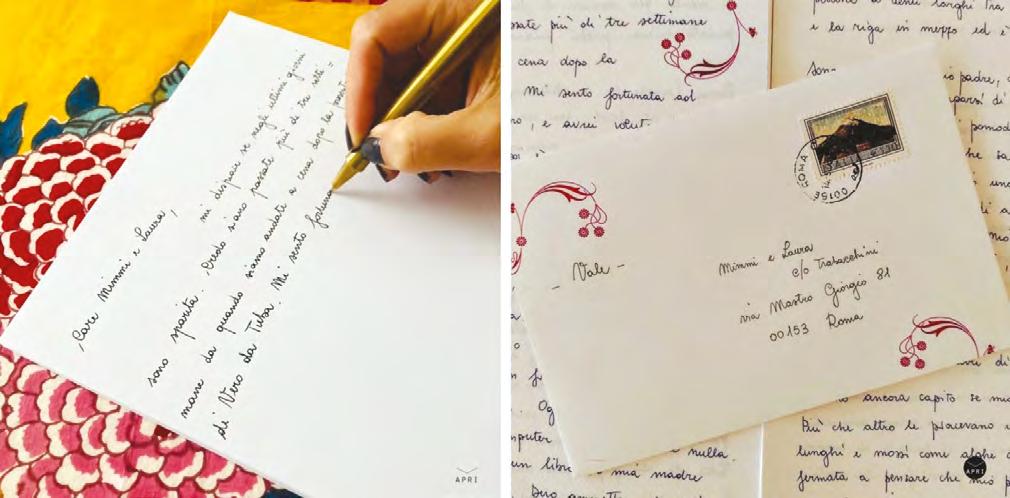 Care Mimmi e Laura,
mi dispiace se negli ultimi giorni
sono sparita. Credo siano passate più di tre setti =
mane da quando siamo andate a cena dopo la
di Vero da Tuba. Mi sento fortuna
APRI
sate più di tre settimane
cena dopo la
Mi sento fortunata ad
, e avrei volut
e la riga in mezzo ed è
io padre,
pomod
Vale -
Mimmi e Laura
c/o Trabacchini
via Mastro Giorgio 81
00153 Roma
ROMA
Og
nulla.
un libr
mia madre
ancora capito se mia
Più che altro le piacevano
lunghi e mossi come alghe
fermata a pensare che mio
APRI